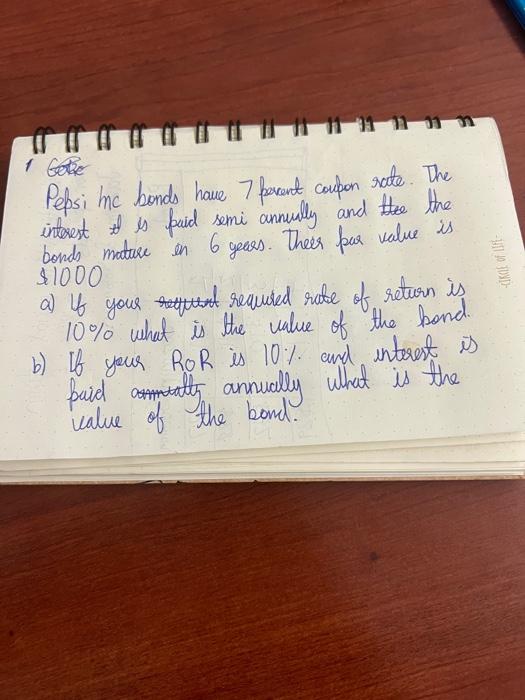 1
Pepsi Inc bonds have 7 percent coupon rate. The
interest is paid semi annually and the
bonds mature in 6 years. Their par value is
$1000
a) If your required rate of return is
10% what is the value of the bond.
b) If your RoR is 10% and interest is
paid annually what is the
value of the bond.